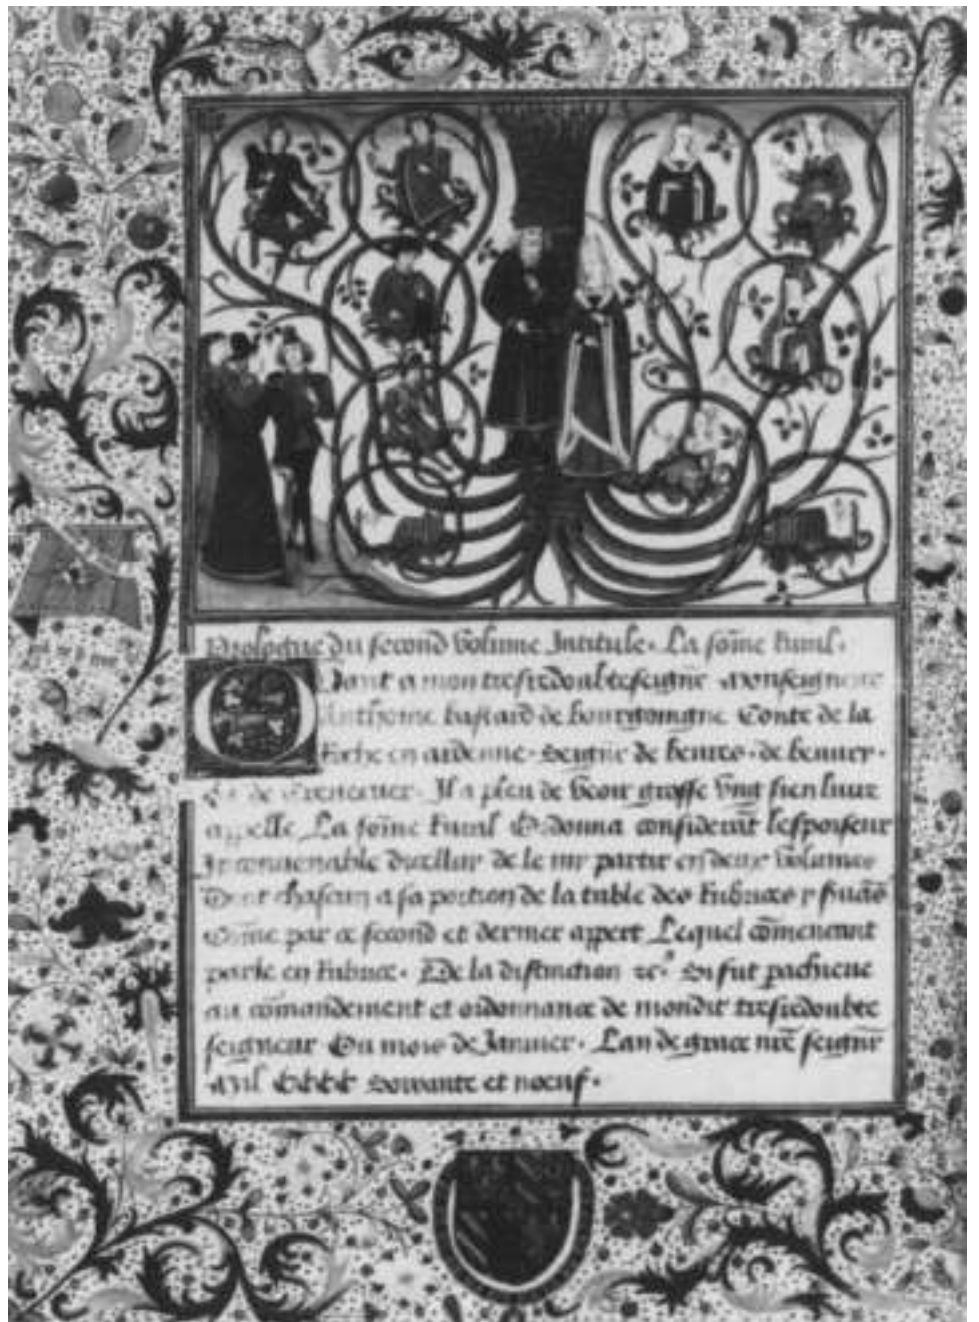 Prologue du second volume Intitule. La som̄e rural.
Quant a mon tresredoubte seigne monseigneur
Anthoine bastard de bourgoingne Conte de la
Roche en ardenne. Seigne de beures. de beuure.
Et de Il a pleu de veoir grosse vng sien liure
appelle La som̄e rural Ordonna considerāt lespoisseur
Inconuenable dicellui de le my partir en deux volumes
Dont chascun a sa portion de la table des rubrices
Com̄e par ce second et dernier appert Lequel com̄encant
parle en rubrice. De la distinction Si fut
au com̄andement et ordonnance de mondit tresredoubte
seigneur Ou mois de Januier. Lan de grace nr̄e seignr̄
Mil CCCC Soixante et noeuf.